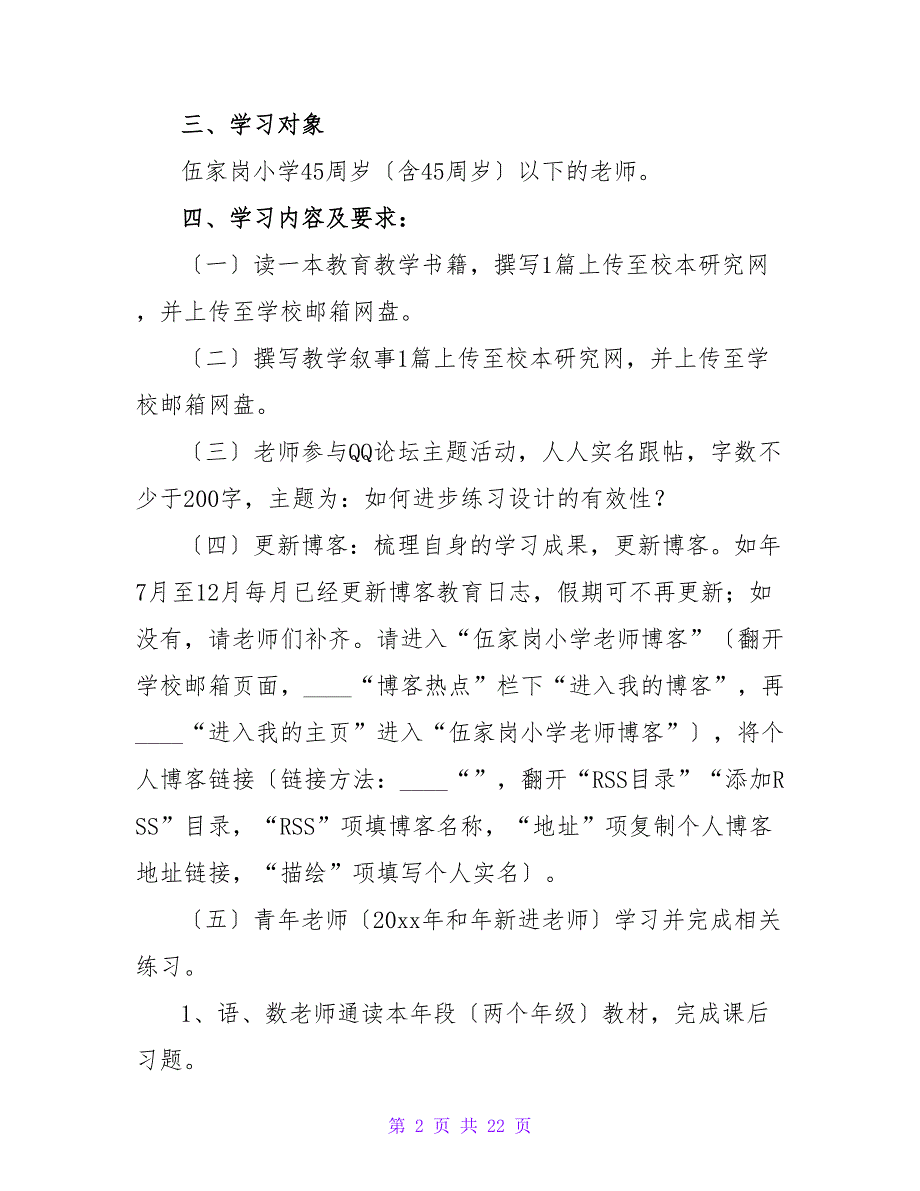 三、学习对象
伍家岗小学45周岁〔含45周岁〕以下的老师。
四、学习内容及要求：
〔一〕读一本教育教学书籍，撰写1篇上传至校本研究网
，并上传至学校邮箱网盘。
〔二〕撰写教学叙事1篇上传至校本研究网，并上传至学
校邮箱网盘。
〔三〕老师参与QQ论坛主题活动，人人实名跟帖，字数不
少于200字，主题为：如何进步练习设计的有效性？
〔四〕更新博客：梳理自身的学习成果，更新博客。如年
7月至12月每月已经更新博客教育日志，假期可不再更新；如
没有，请老师们补齐。请进入“伍家岗小学老师博客”〔翻开
学校邮箱页面，____“博客热点”栏下“进入我的博客”，再
____“进入我的主页”进入“伍家岗小学老师博客”〕，将个
人博客链接〔链接方法：____“”，翻开“RSS目录”“添加R
SS”目录，“RSS”项填博客名称，“地址”项复制个人博客
地址链接，“描绘”项填写个人实名〕。
〔五〕青年老师〔20xx年和年新进老师〕学习并完成相关
练习。
1、语、数老师通读本年段〔两个年级〕教材，完成课后
习题。
第 2 页 共 22 页